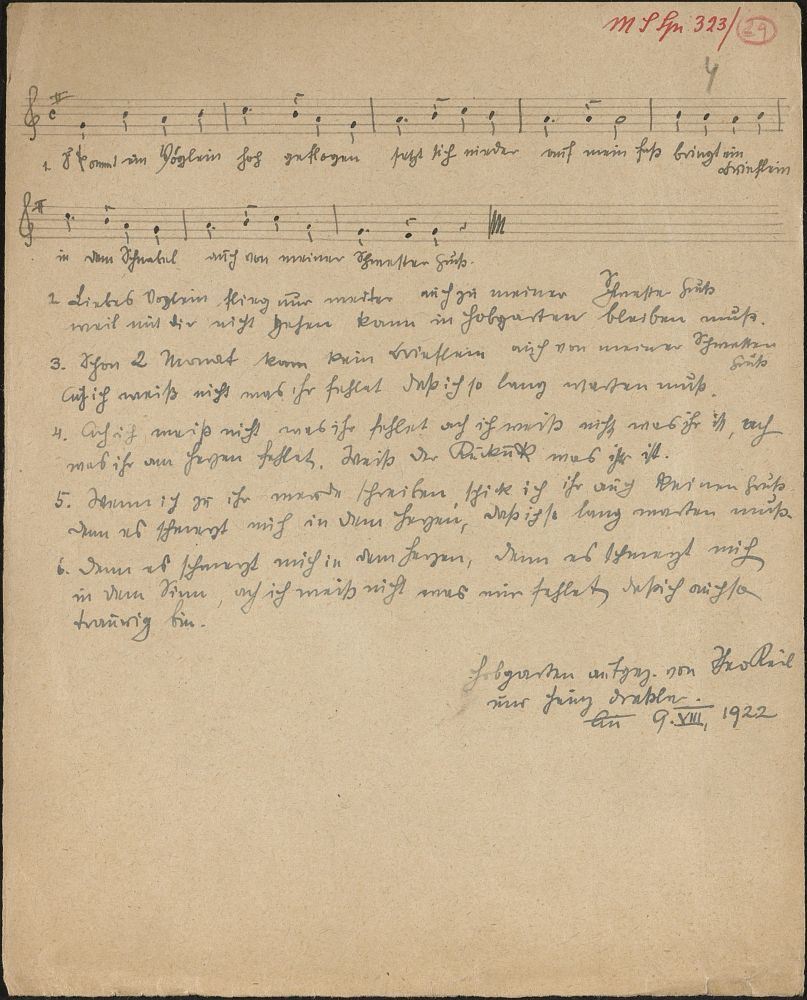 M S Spr 323/ 29
4
1. Es kommt ein Vöglein hoch geflogen setzt sich nieder auf mein Fuß bringt ein
Brieflein
in dem Schnabel auch von meiner Schwester Gruß.
2 Liebes Voglein flieg nur weiter auch zu meiner Schwester Gruß
weil mit dir nicht gehen kann in Hobgarten bleiben muß.
3. Schon 2 Monat kam kein Brieflein auch von meiner Schwester
Gruß
Ach ich weiß nicht was ihr fehlet daß ich so lang warten muß.
4. Ach ich weiß nicht was ihr fehlet ach ich weiß nicht was ihr ist, ach
was ihr am Herzen fehlet. Weiß der Kuckuck was ihr ist.
5. Wenn ich zu ihr werde schreiben, schick ich ihr auch keinen Gruß
denn es schmerzt mich in dem Herzen, daß ich so lang warten muß.
6. Denn es schmerzt mich in dem Herzen, denn es schmerzt mich
in dem Sinn, ach ich weiß nicht was mir fehlet, daß ich auch so
traurig bin.
Hobgarten aufgez. von Theo Keil
und Heinz
Am 9. VIII, 1922